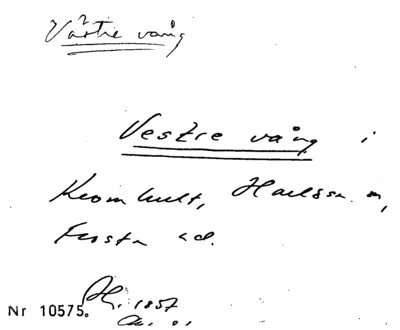 Västre vång
Vestre vång i
Kromhult, Harlösa sn,
Frosta hd.
Nr 10575. 1857